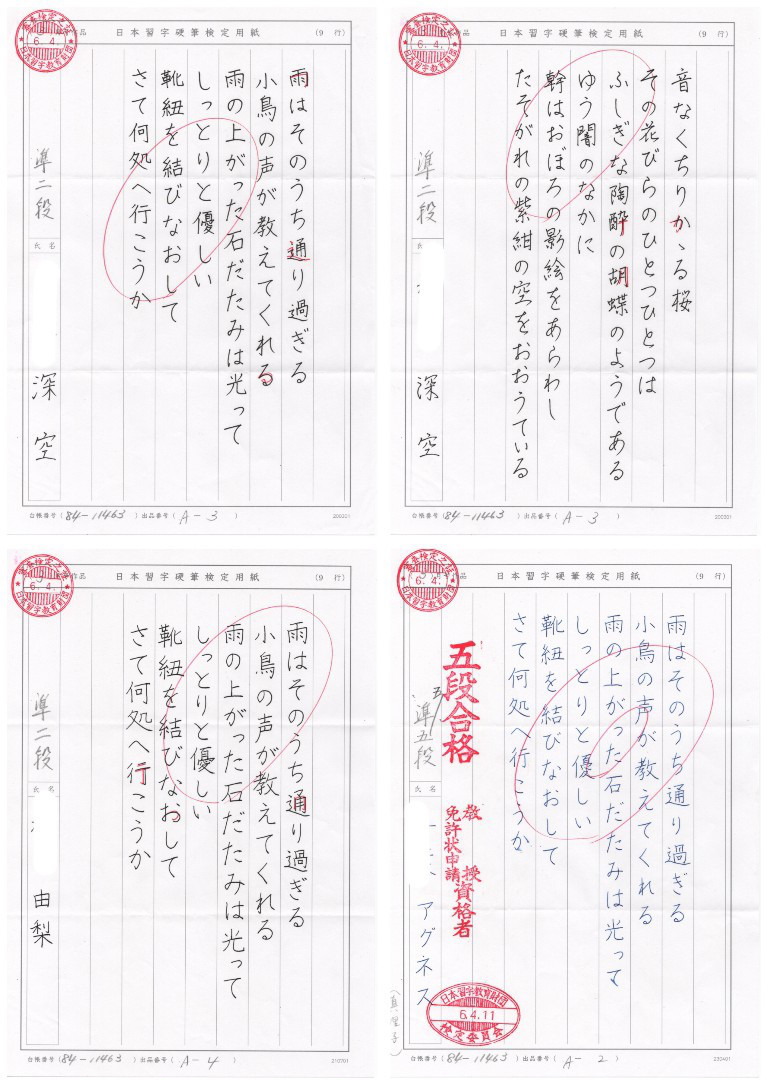 日本習字硬筆検定用紙
(9 行)
審査検定之証
6.4.
日本習字教育財団
雨はそのうち通り過ぎる
小鳥の声が教えてくれる
雨の上がった石だたみは光って
しっとりと優しい
靴紐を結びなおして
さて何処へ行こうか
準二段
氏 名
深空
台帳番号 (84-11463 ) 出品番号 ( A-3 )
200301
日本習字硬筆検定用紙
(9 行)
審査検定之証
6.4.
日本習字教育財団
音なくちりかゝる桜
その花びらのひとつひとつは
ふしぎな陶酔の胡蝶のようである
ゆう闇のなかに
幹はおぼろの影絵をあらわし
たそがれの紫紺の空をおおうている
準二段
氏 名
深空
台帳番号 (84-11463 ) 出品番号 ( A-3 )
200301
作品
日本習字硬筆検定用紙
(9 行)
審査検定之証
6.4.
日本習字教育財団
雨はそのうち通り過ぎる
小鳥の声が教えてくれる
雨の上がった石だたみは光って
しっとりと優しい
靴紐を結びなおして
さて何処へ行こうか
準二段
氏 名
由梨
台帳番号 (84-11463 ) 出品番号 ( A-4 )
210701
作品
日本習字硬筆検定用紙
(9 行)
審査検定之証
6.4.
日本習字教育財団
雨はそのうち通り過ぎる
小鳥の声が教えてくれる
雨の上がった石だたみは光って
しっとりと優しい
靴紐を結びなおして
さて何処へ行こうか
五段合格
敬授資格者
免許状申請
準五段
五
氏 名
アグネス
日本習字教育財団
6.4.11
検定委員会
台帳番号 (84-11463 ) 出品番号 ( A-2 )
230401